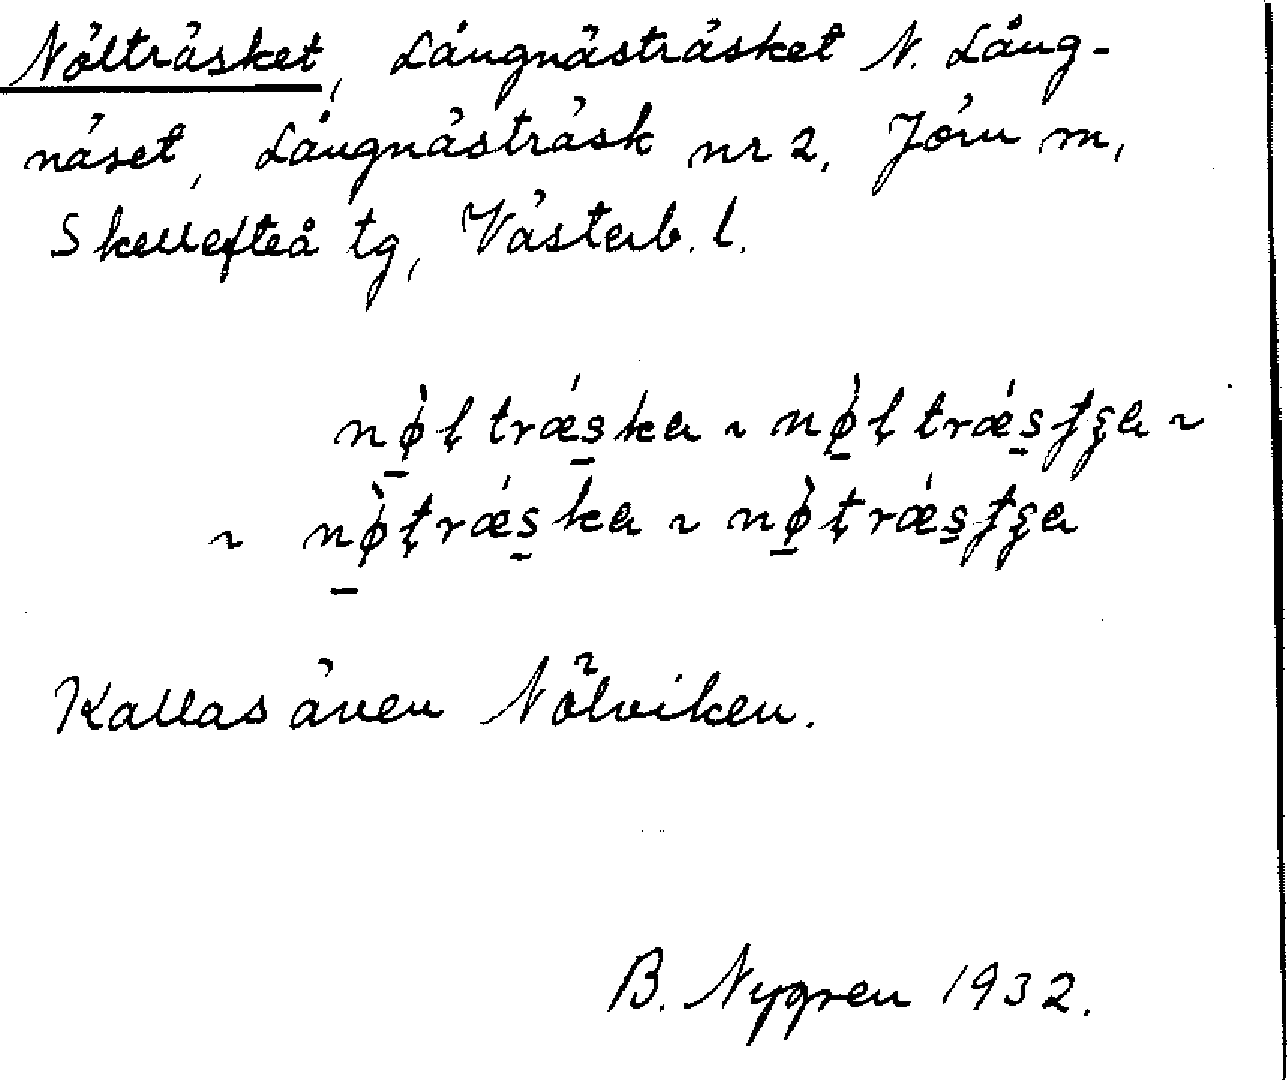 Nölträsket, Långnästräsket N. Lång-
näset, Långnästräsk nr 2, Jörn m,
Skellefteå tg, Västerb. l.
nø̠̀l̨ trǽ̨s̠ka ~ nø̠̀l̨ trǽs̠ʃş̌a ~
~ nø̠̀t̨rǽs̠ka ~ nø̠̀t̨rǽs̠ʃş̌a
Kallas även Nölviken.
B. Nygren 1932.